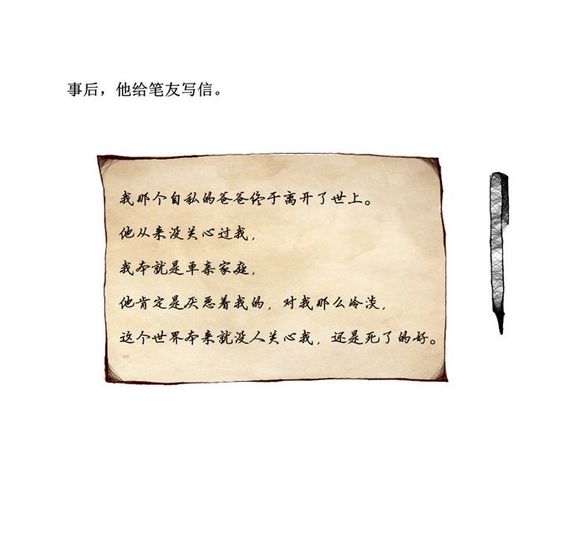 事后，他给笔友写信。
我那个自私的爸爸终于离开了世上。
他从来没关心过我，
我本就是单亲家庭，
他肯定是厌恶着我的，对我那么冷淡，
这个世界本来就没人关心我，还是死了的好。